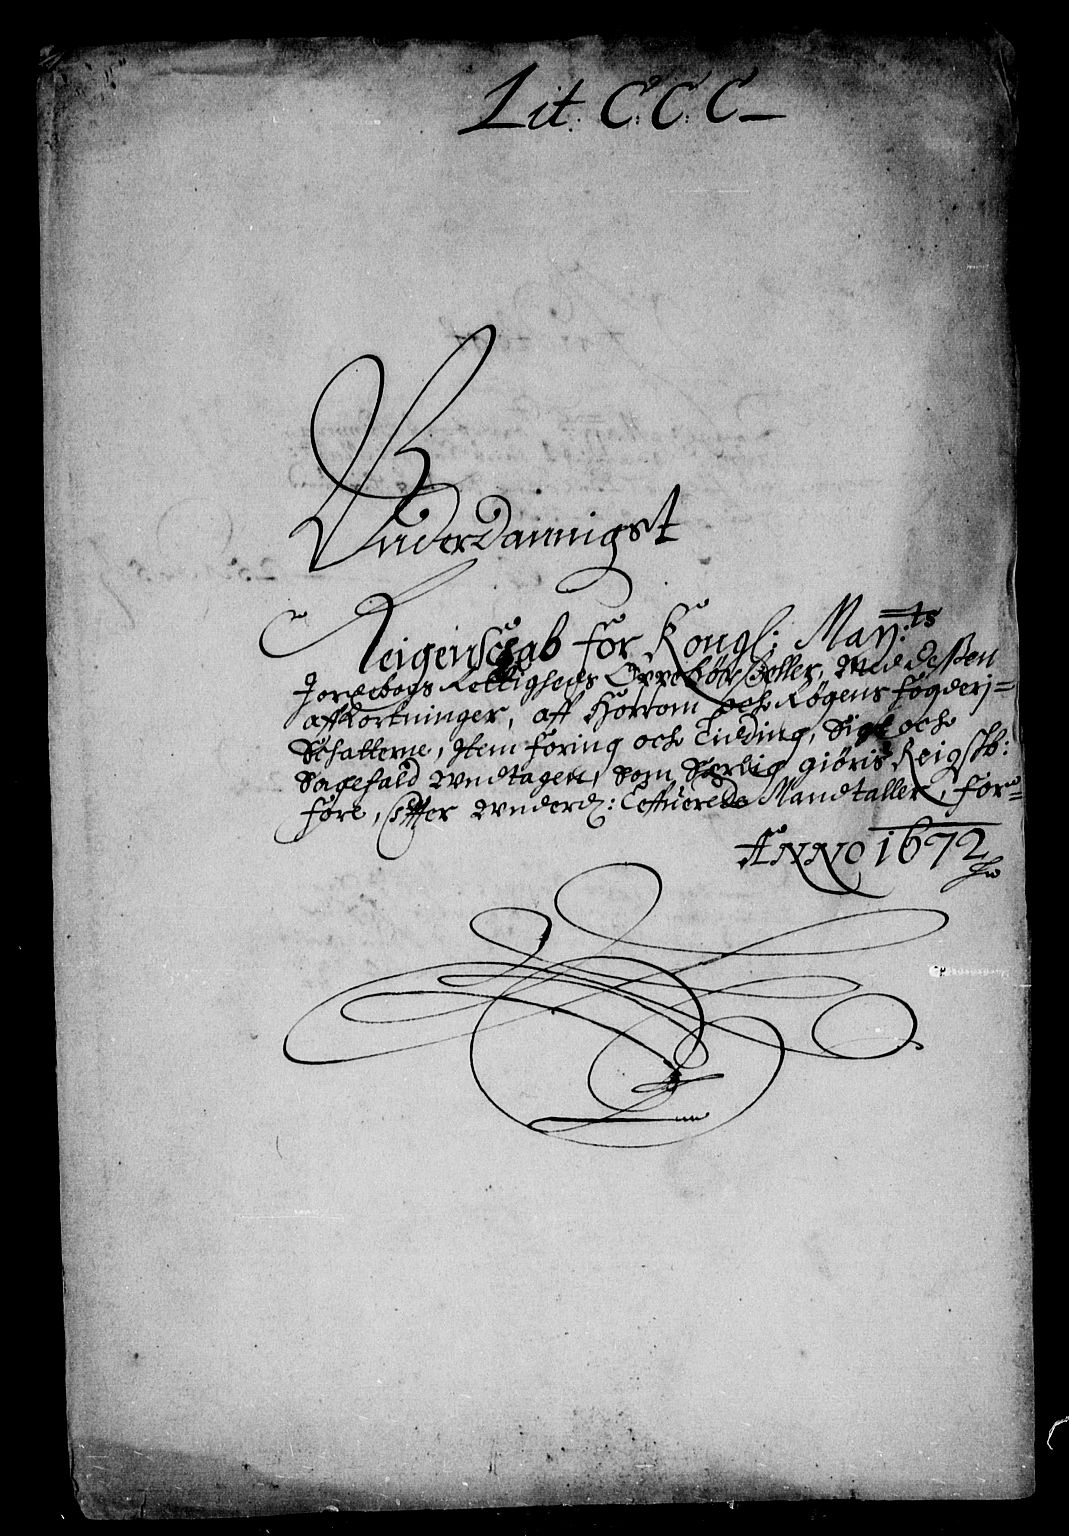 Lit: C: C: C
Underdannigst
Reigenschab for Kongl: May:ts
Jordebogs Rettigheds Oppebørsseller, Med dessen
affkortninger, aff Horrom och Røgens fogderj=
Schatterne, Item foring och Leeding, Sigt och
Sagefald undtagett, som Særlig giøris Reigskb:
fore, Effter underd: Leffuerede Mandtaller, for=
ANNO 1672